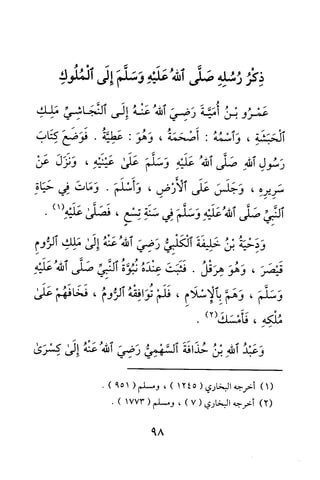 ذِكْرُ رُسُلِهِ صَلَّى ٱللهُ عَلَيْهِ وَسَلَّمَ إِلَى ٱلْمُلُوكِ
عَمْرُو بْنُ أُمَيَّةَ رَضِيَ ٱللهُ عَنْهُ إِلَى ٱلنَّجَاشِيِّ مَلِكِ
ٱلْحَبَشَةِ ، وَٱسْمُهُ : أَصْحَمَةُ ، وَهُوَ : عَطِيَّةُ . فَوَضَعَ كِتَابَ
رَسُولِ ٱللهِ صَلَّى ٱللهُ عَلَيْهِ وَسَلَّمَ عَلَىٰ عَيْنَيْهِ ، وَنَزَلَ عَنْ
سَرِيرِهِ ، وَجَلَسَ عَلَى ٱلْأَرْضِ ، وَأَسْلَمَ . وَمَاتَ فِي حَيَاةِ
ٱلنَّبِيِّ صَلَّى ٱللهُ عَلَيْهِ وَسَلَّمَ فِي سَنَةِ تِسْعٍ ، فَصَلَّىٰ عَلَيْهِ(١) .
وَدِحْيَةُ بْنُ خَلِيفَةَ ٱلْكَلْبِيُّ رَضِيَ ٱللهُ عَنْهُ إِلَىٰ مَلِكِ ٱلرُّومِ
قَيْصَرَ ، وَهُوَ هِرَقْلُ . فَثَبَتَ عِنْدَهُ نُبُوَّةُ ٱلنَّبِيِّ صَلَّى ٱللهُ عَلَيْهِ
وَسَلَّمَ ، وَهَمَّ بِٱلْإِسْلَامِ ، فَلَمْ تُوَافِقْهُ ٱلرُّومُ ، فَخَافَهُمْ عَلَىٰ
مُلْكِهِ ، فَأَمْسَكَ(٢) .
وَعَبْدُ ٱللهِ بْنُ حُذَافَةَ ٱلسَّهْمِيُّ رَضِيَ ٱللهُ عَنْهُ إِلَىٰ كِسْرَىٰ
(١) أخرجه البخاري ( ١٢٤٥ ) ، ومسلم ( ٩٥١ ) .
(٢) أخرجه البخاري ( ٧ ) ، ومسلم ( ١٧٧٣ ) .
٩٨